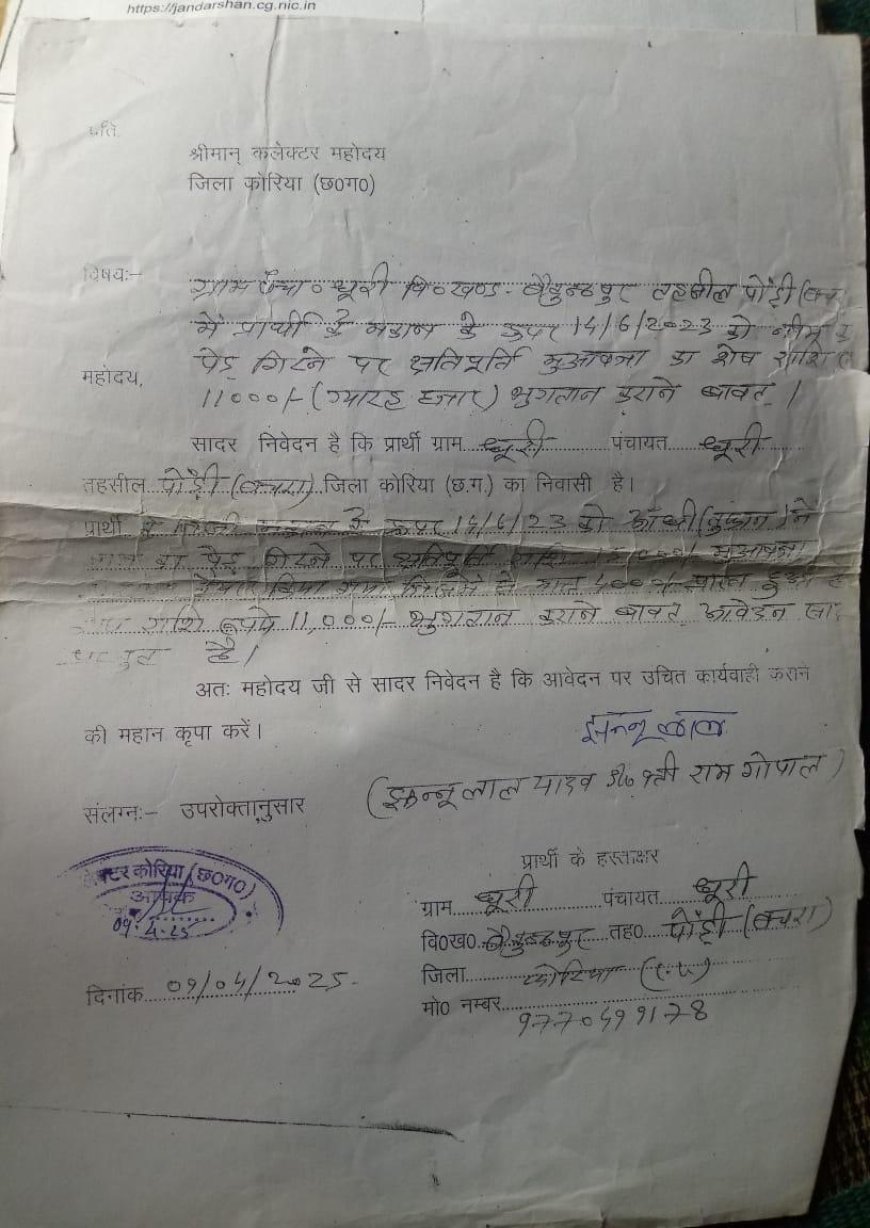 https://jandarshan.cg.nic.in
प्रति,
श्रीमान् कलेक्टर महोदय
जिला कोरिया (छ0ग0)
विषय:-
ग्राम पंचा० धूरी वि०खण्ड - बैकुन्ठपुर तहसील पोंड़ी (बच
में प्रार्थी के मकान के ऊपर 14/6/2023 को नीम
पेड़ गिरने पर क्षतिपूर्ति मुआवजा का शेष राशि
महोदय,
11000/- (ग्यारह हजार) भुगतान कराने बावत् ।
सादर निवेदन है कि प्रार्थी ग्राम धूरी पंचायत धूरी
तहसील पोंड़ी (बचरा) जिला कोरिया (छ.ग.) का निवासी है।
प्रार्थी के मकान के ऊपर 14/6/23 को आँधी (तुफान)
का पेड़ गिरने पर क्षतिपूर्ति राशि मुआवजा
किया गया जिसमें से मात्र 4000/- प्राप्त हुआ
राशि रूपये 11,000/- भुगतान कराने बावत् आवेदन
है।
अतः महोदय जी से सादर निवेदन है कि आवेदन पर उचित कार्यवाही कराने
की महान कृपा करें।
झन्नू लाल
संलग्न:- उपरोक्तानुसार
(झन्नू लाल यादव S/o श्री राम गोपाल)
प्रार्थी के हस्ताक्षर
क्टर कोरिया (छ0ग0)
आवक
09.4.25
ग्राम धूरी पंचायत धूरी
वि0ख0 बैकुन्ठपुर तह0 पोंड़ी (बचरा)
जिला कोरिया (छ.ग.)
दिनांक 09/04/2025
मो0 नम्बर
9770499178